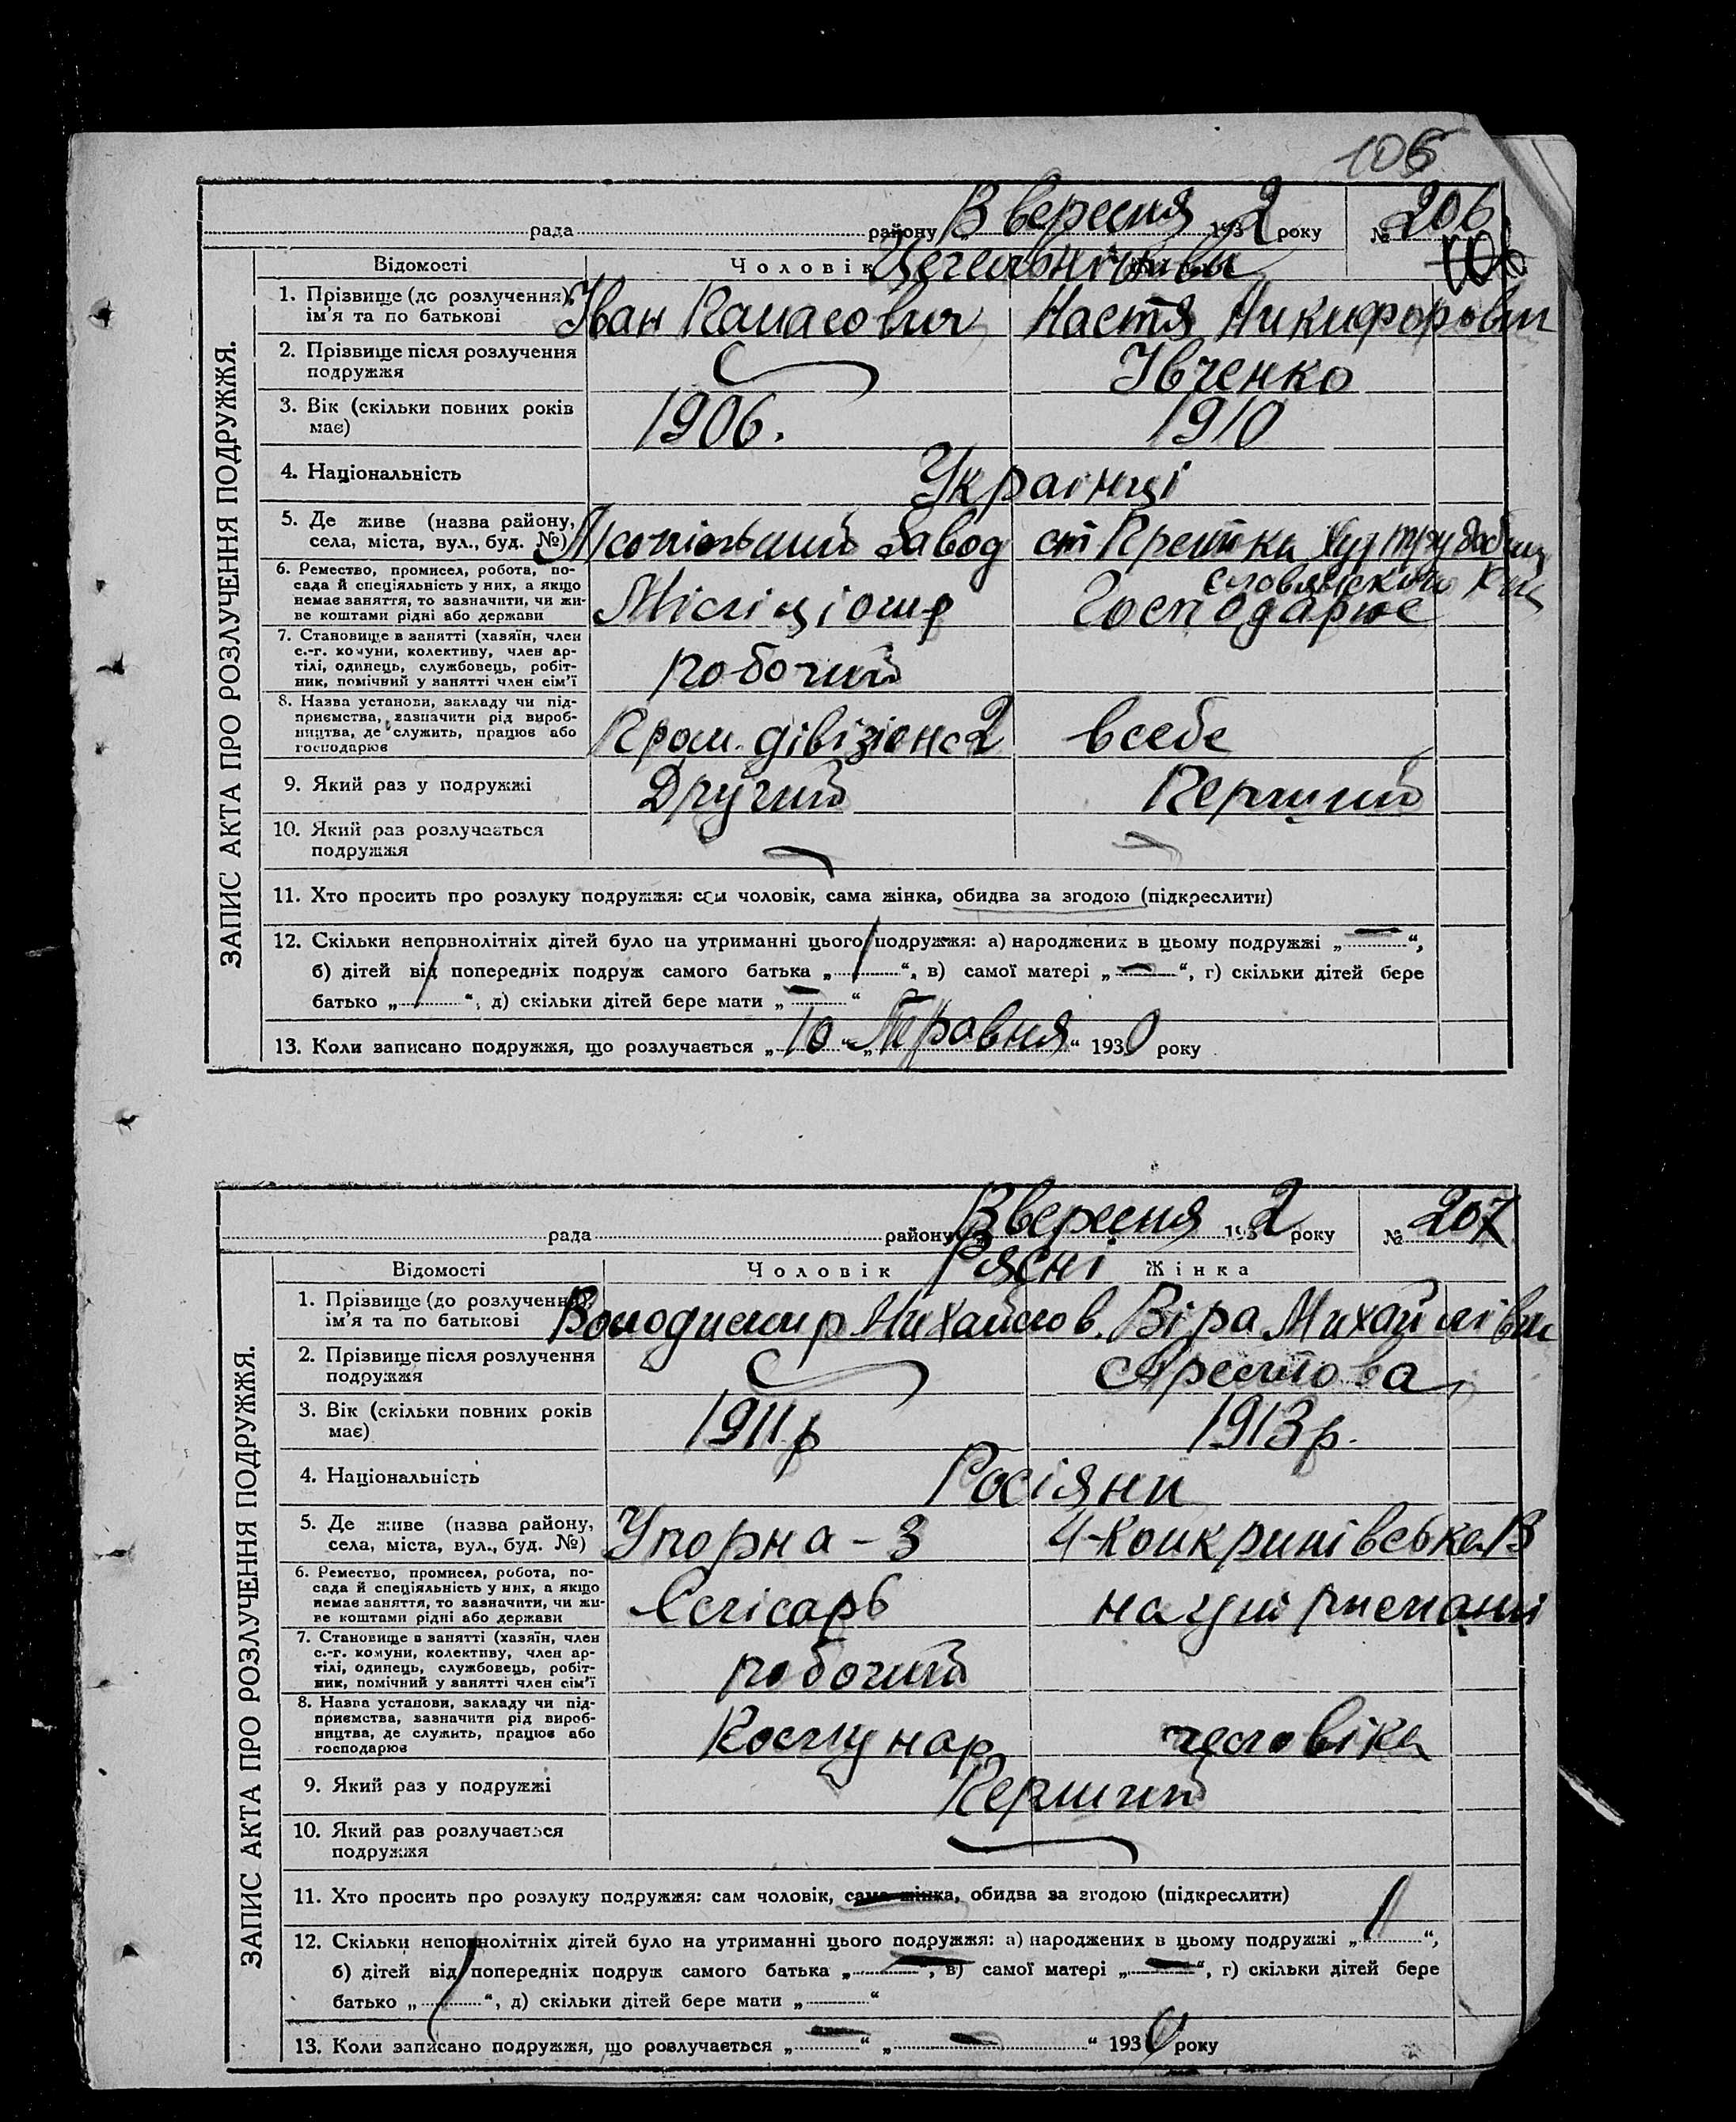 105
рада району „3 вересня 1932 року № 206
106
Відомості Чоловік
1. Прізвище (до розлучення), ім'я та по батькові Іван Панасович Настя Никифоровн
2. Прізвище після розлучення подружжя Івченко
3. Вік (скільки повних років має) 1906. 1910
4. Національність Українці
5. Де живе (назва району, села, міста, вул., буд. №) завод ст
6. Ремество, промисел, робота, посада й спеціяльність у них, а якщо немає заняття, то зазначити, чи живе коштами рідні або держави Міліціонер Господарює
7. Становище в занятті (хазяїн, член с.-г. комуни, колективу, член артілі, одинець, службовець, робітник, помічний у занятті член сім'ї робочий
8. Назва установи, закладу чи підприємства, зазначити рід виробництва, де служить, працює або господарює Пром. дівізіон 2 в себе
9. Який раз у подружжі Другий Перший
10. Який раз розлучається подружжя
11. Хто просить про розлуку подружжя: сам чоловік, сама жінка, обидва за згодою (підкреслити)
12. Скільки неповнолітніх дітей було на утриманні цього подружжя: а) народжених в цьому подружжі „—“,
б) дітей від попередніх подруж самого батька „1“, в) самої матері „—“, г) скільки дітей бере
батько „1“, д) скільки дітей бере мати „—“
13. Коли записано подружжя, що розлучається „10“ „Травня“ 1930 року
ЗАПИС АКТА ПРО РОЗЛУЧЕННЯ ПОДРУЖЖЯ.
рада району 3 вересня 1932 року № 207
Відомості Чоловік Рясні Жінка
1. Прізвище (до розлучення), ім'я та по батькові Володимир Михайлов. Віра Михайлівн
2. Прізвище після розлучення подружжя Арестова
3. Вік (скільки повних років має) 1911 р 1913 р.
4. Національність Росіяни
5. Де живе (назва району, села, міста, вул., буд. №) Упорна – 3
6. Ремество, промисел, робота, посада й спеціяльність у них, а якщо немає заняття, то зазначити, чи живе коштами рідні або держави Слісарь на утриманні
7. Становище в занятті (хазяїн, член с.-г. комуни, колективу, член артілі, одинець, службовець, робітник, помічний у занятті член сім'ї робочий
8. Назва установи, закладу чи підприємства, зазначити рід виробництва, де служить, працює або господарює Комунар чоловіка
9. Який раз у подружжі Перший
10. Який раз розлучається подружжя
11. Хто просить про розлуку подружжя: сам чоловік, сама жінка, обидва за згодою (підкреслити)
12. Скільки неповнолітніх дітей було на утриманні цього подружжя: а) народжених в цьому подружжі „1“,
б) дітей від попередніх подруж самого батька „—“, в) самої матері „—“, г) скільки дітей бере
батько „1“, д) скільки дітей бере мати „—“
13. Коли записано подружжя, що розлучається „—“ „—“ 1930 року
ЗАПИС АКТА ПРО РОЗЛУЧЕННЯ ПОДРУЖЖЯ.